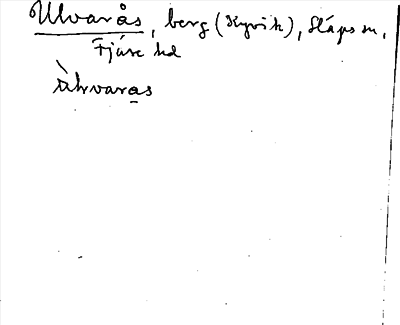 Ulvarås, berg (Kyvik), Släps sn,
Fjäre hd
ùlvaras